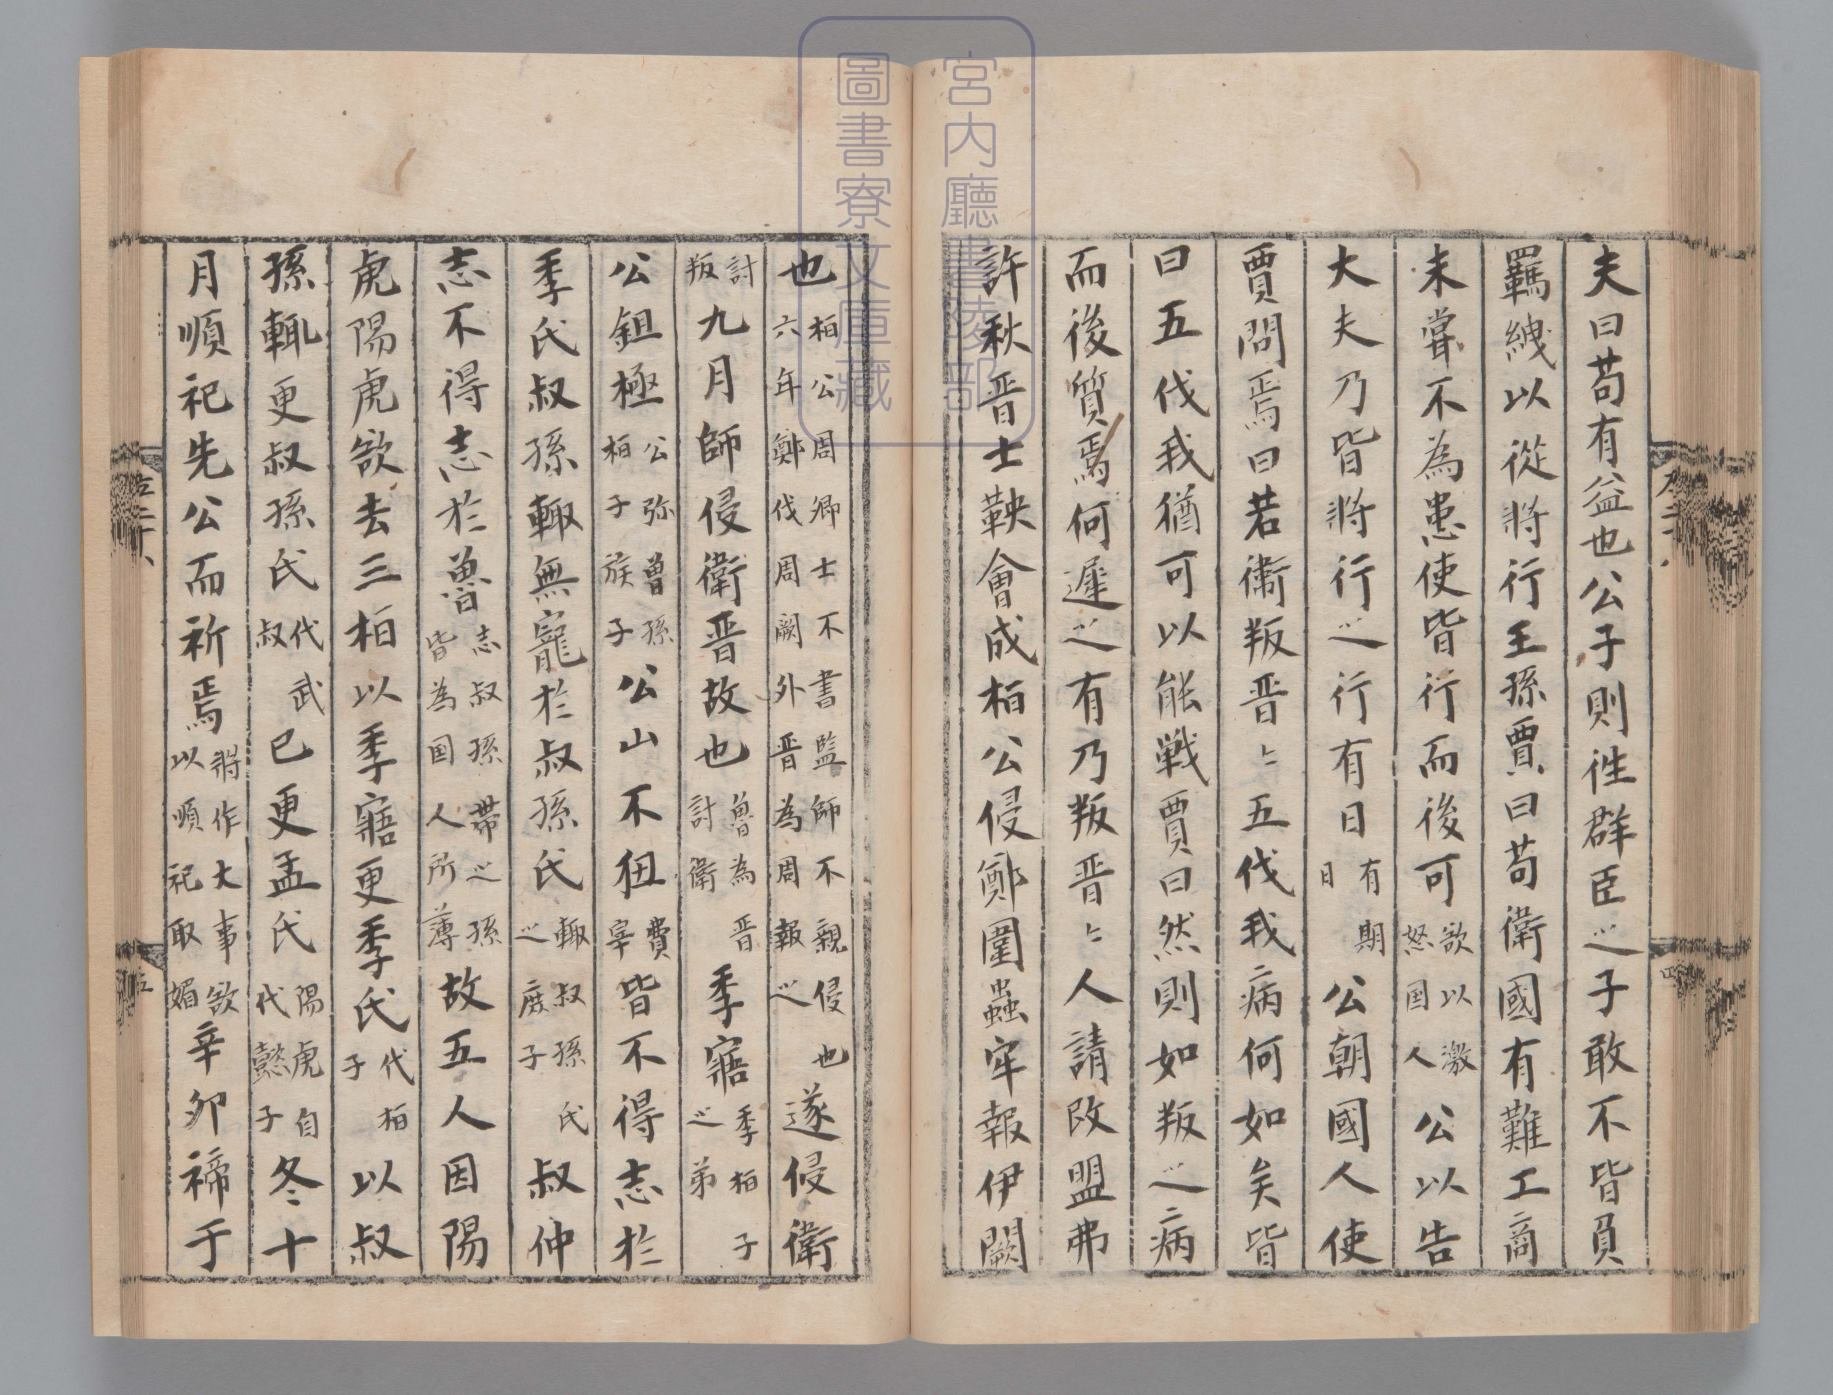 宮内廳書陵部
圖書寮文庫藏
夫曰苟有益也公子則徃群臣之子敢不皆負
羈絏以從將行王孫賈曰苟衛國有難工商
未甞不為患使皆行而後可欲以激怒国人公以告
大夫乃皆將行之行有日有期日公朝國人使
賈問焉曰若衛叛晋〻五伐我病何如矣皆
曰五伐我猶可以能戦賈曰然則如叛之病
而後質焉何遲之有乃叛晋〻人請改盟弗
許秋晋士鞅會成桓公侵鄭圍蟲牢報伊闕
也桓公周卿士不書監師不親侵也六年鄭伐周闕外晋為周報之遂侵衛
討叛九月師侵衛晋故也魯為晋討衛季寤季桓子之弟
公鉏極公弥曽孫桓子族子公山不狃費宰皆不得志於
季氏叔孫輙無寵於叔孫氏輙叔孫氏之庶子叔仲
志不得志於魯志叔孫帯之孫皆為国人所薄故五人因陽
虎陽虎欲去三桓以季寤更季氏代桓子以叔
孫輙更叔孫氏代武叔已更孟氏陽虎自代懿子冬十
月順祀先公而祈焉將作大事欲以順祀取媚辛卯禘于
左二十八
五